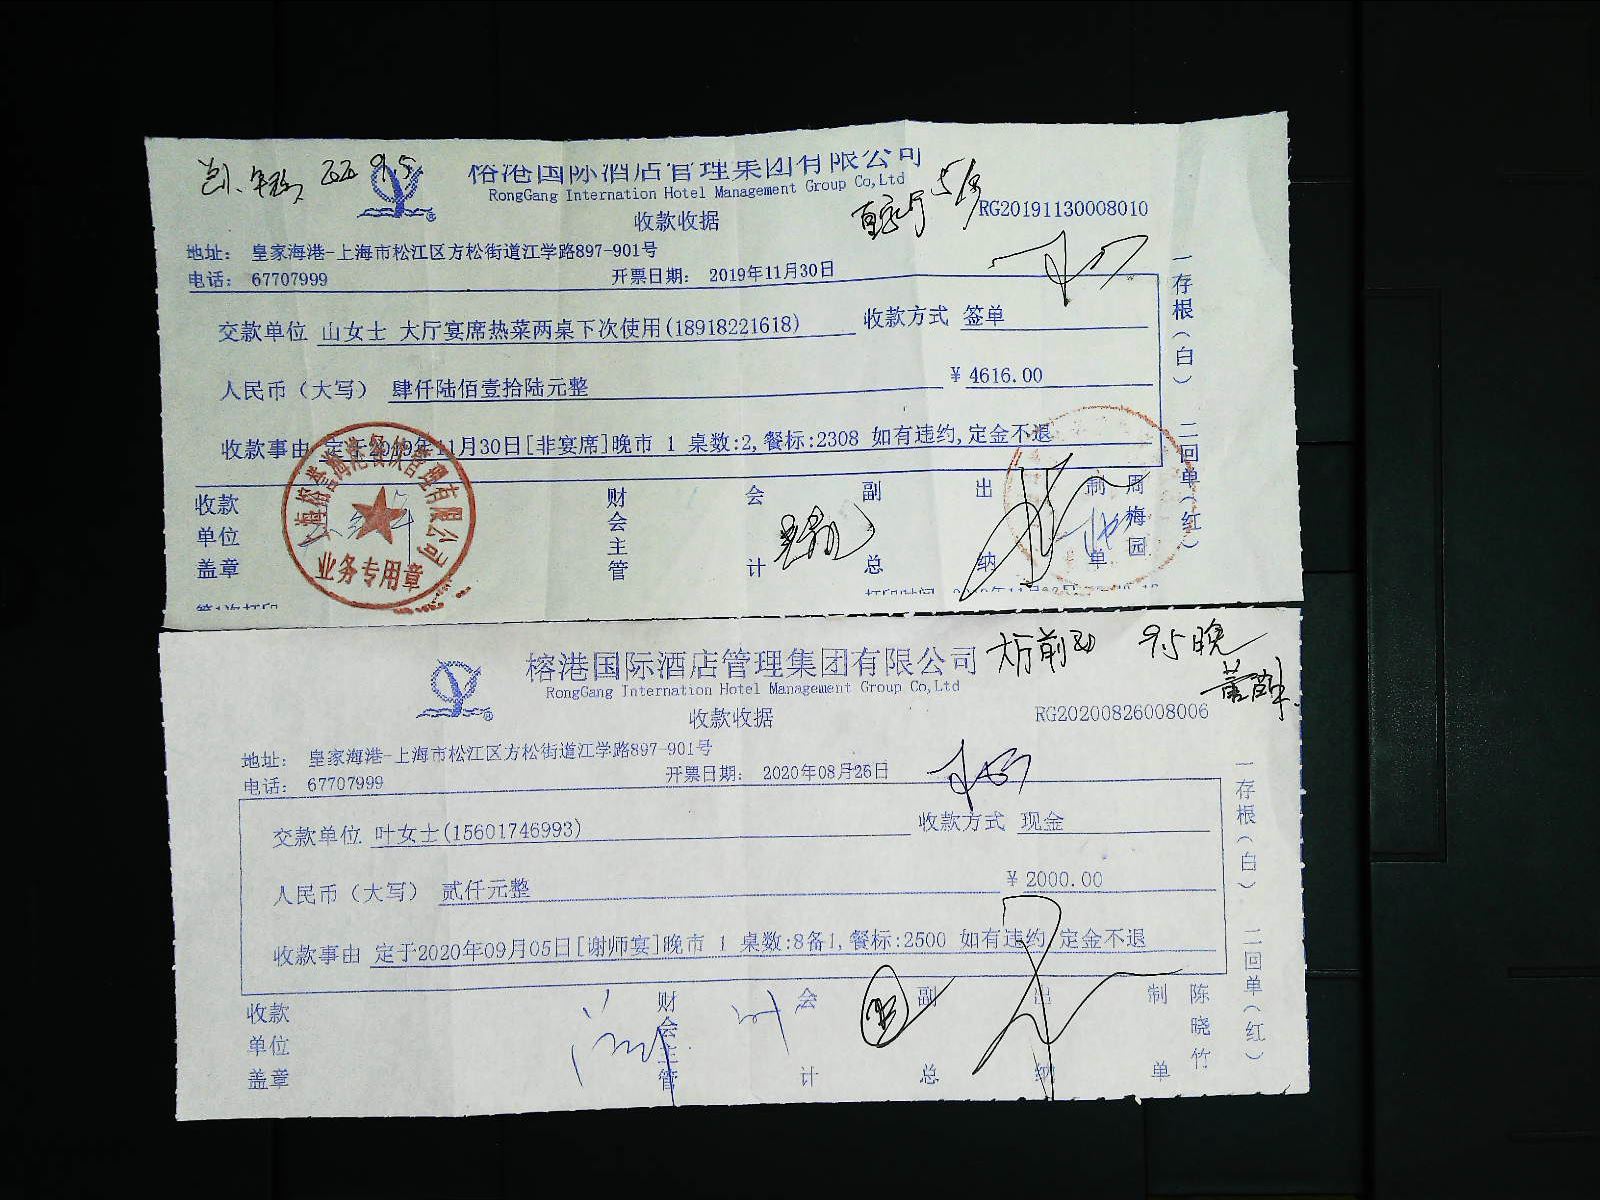 9.5
榕港国际酒店管理集团有限公司
RongGang Internation Hotel Management Group Co,Ltd
收款收据
RG20191130008010
地址： 皇家海港-上海市松江区方松街道江学路897-901号
电话： 67707999
开票日期： 2019年11月30日
交款单位 山女士 大厅宴席热菜两桌下次使用(18918221618)
收款方式 签单
人民币（大写） 肆仟陆佰壹拾陆元整
￥4616.00
收款事由 定于2019年11月30日[非宴席]晚市 1 桌数:2,餐标:2308 如有违约,定金不退
一存根（白） 二回单（红）
收款单位盖章
财会主管
会计
副总
出纳
制单
周梅园
业务专用章
第1次打印
打印时间
榕港国际酒店管理集团有限公司
9.5晚
RongGang Internation Hotel Management Group Co,Ltd
收款收据
RG20200826008006
地址： 皇家海港-上海市松江区方松街道江学路897-901号
电话： 67707999
开票日期： 2020年08月26日
交款单位 叶女士(15601746993)
收款方式 现金
人民币（大写） 贰仟元整
￥2000.00
收款事由 定于2020年09月05日[谢师宴]晚市 1 桌数:8备1,餐标:2500 如有违约,定金不退
一存根（白） 二回单（红）
收款单位盖章
财会主管
会计
副总
出纳
制单
陈晓竹